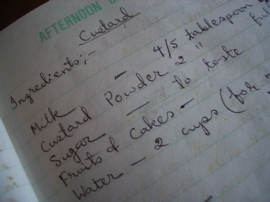 AFTERNOON
Custard
Ingredients:-
Milk
Custard Powder - 4/5 tablespoon
Sugar - 2 "
Fruits & Cakes - To taste
Water - 2 cups (for